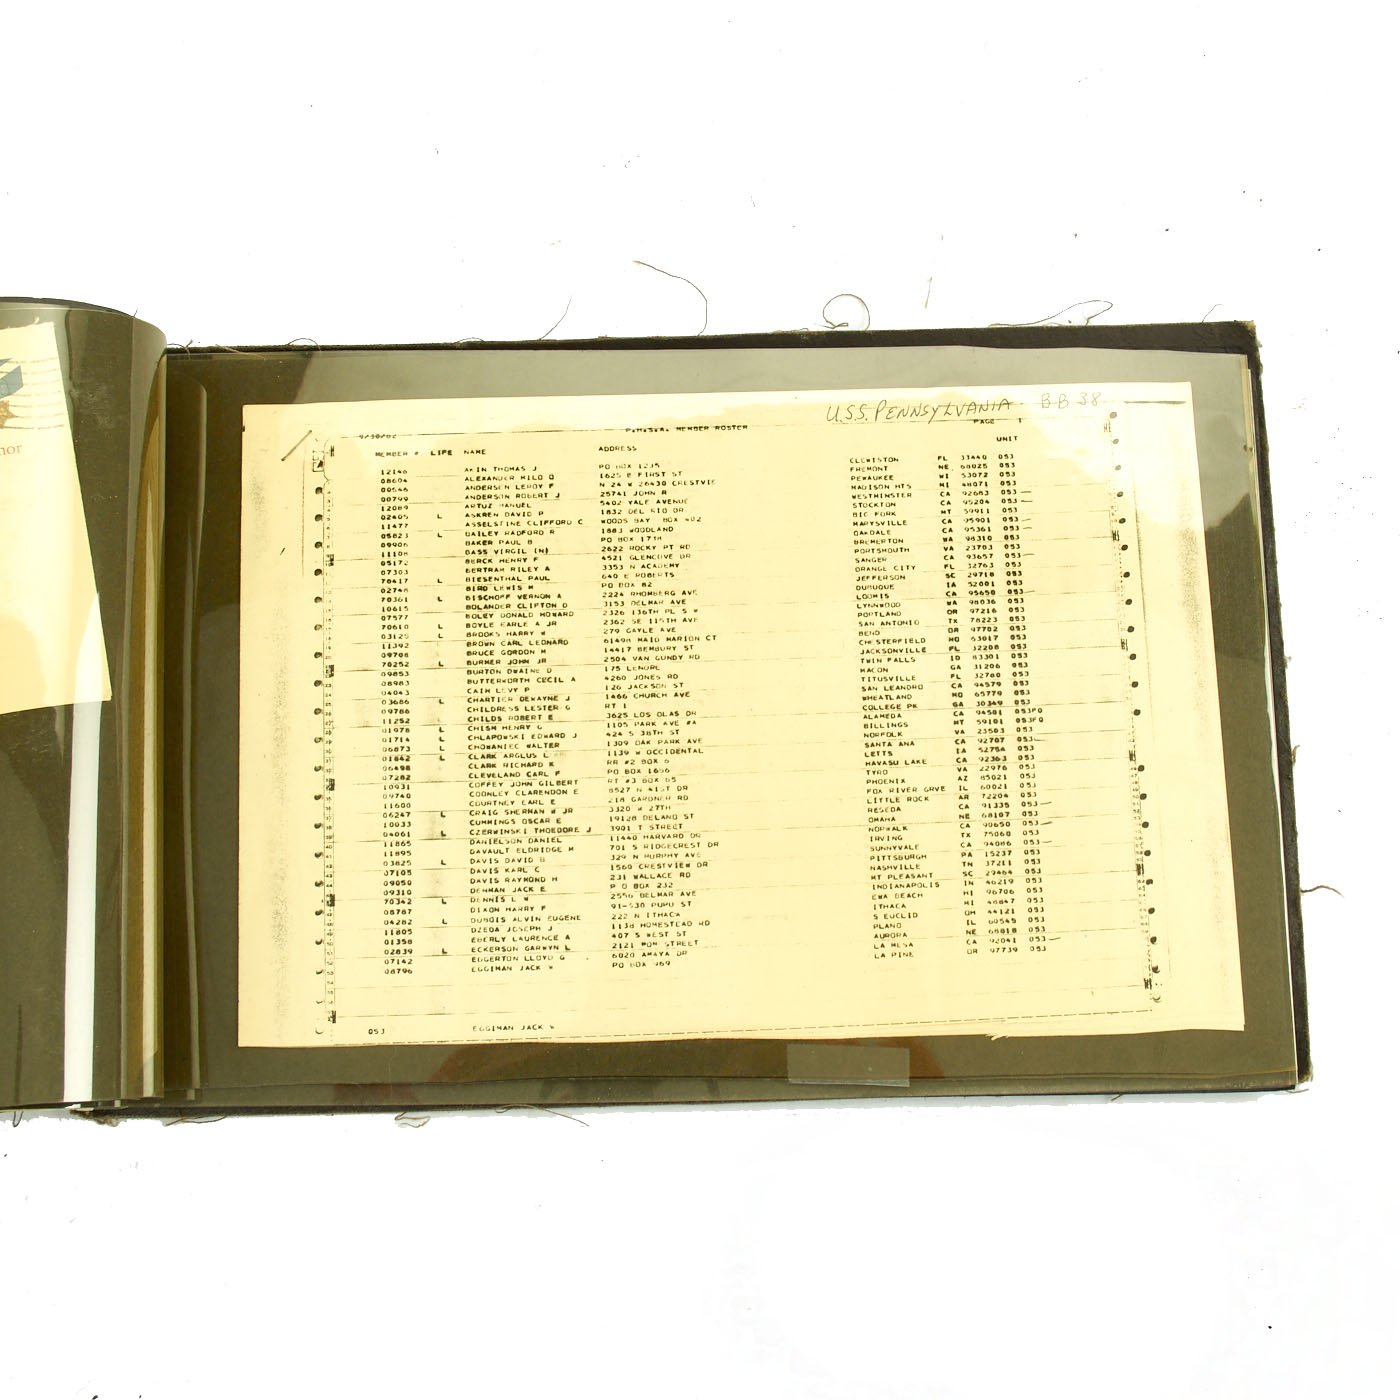 nor
U.S.S. PENNSYLVANIA BB 38
9/30/82 P.H.S.A. MEMBER ROSTER PAGE 1
MEMBER # LIFE NAME ADDRESS UNIT
12146 AKIN THOMAS J PO BOX 1235 CLEWISTON FL 33440 053
08604 ALEXANDER MILO D 1625 E FIRST ST FREMONT NE 68025 053
00546 ANDERSEN LEROY F N 24 W 26430 CRESTVIE PEWAUKEE WI 53072 053
00799 ANDERSON ROBERT J 25741 JOHN R MADISON HTS MI 48071 053
12089 ARTUZ MANUEL 5402 YALE AVENUE WESTMINSTER CA 92683 053
02405 L ASKREN DAVID P 1832 DEL RIO DR STOCKTON CA 95204 053
11477 ASSELSTINE CLIFFORD C WOODS BAY BOX 402 BIG FORK MT 59911 053
05823 L BAILEY RADFORD R 1883 WOODLAND MARYSVILLE CA 95901 053
09906 BAKER PAUL B PO BOX 1738 OAKDALE CA 95361 053
11108 BASS VIRGIL (N) 2622 ROCKY PT RD BREMERTON WA 98310 053
05172 BERCK HENRY F 4521 GLENCOVE DR PORTSMOUTH VA 23703 053
07303 BERTRAM RILEY A 3353 N ACADEMY SANGER CA 93657 053
70417 L BIESENTHAL PAUL 640 E ROBERTS ORANGE CITY FL 32763 053
02748 BIRD LEWIS M PO BOX 82 JEFFERSON SC 29718 053
70361 L BISCHOFF VERNON A 2224 RHOMBERG AVE DUBUQUE IA 52001 053
10615 BOLANDER CLIFTON D 3153 DELMAR AVE LOOMIS CA 95650 053
07577 BOLEY DONALD HOWARD 2326 136TH PL S W LYNNWOOD WA 98036 053
70610 L BOYLE EARLE A JR 2362 SE 115TH AVE PORTLAND OR 97216 053
03125 L BROOKS HARRY W 279 GAYLE AVE SAN ANTONIO TX 78223 053
11392 BROWN CARL LEONARD 61498 MAID MARION CT BEND OR 97702 053
09708 BRUCE GORDON M 14417 BEMBURY ST CHESTERFIELD MO 63017 053
70252 L BURMER JOHN JR 2504 VAN GUNDY RD JACKSONVILLE FL 32208 053
09853 BURTON DWAINE D 175 LENORE TWIN FALLS ID 83301 053
08983 BUTTERWORTH CECIL A 4260 JONES RD MACON GA 31206 053
04043 CAIN LEVY P 126 JACKSON ST TITUSVILLE FL 32780 053
03686 L CHARTIER DEWAYNE J 1466 CHURCH AVE SAN LEANDRO CA 94579 053
09786 CHILDRESS LESTER G RT 1 WHEATLAND MO 65779 053
11252 CHILDS ROBERT E 3625 LOS OLAS DR COLLEGE PK GA 30349 053
01978 L CHISM HENRY G 1105 PARK AVE #A ALAMEDA CA 94501 053FO
01714 L CHLAPOWSKI EDWARD J 424 S 38TH ST BILLINGS MT 59101 053FO
06873 L CHOWANIEC WALTER 1309 OAK PARK AVE NORFOLK VA 23503 053
01842 L CLARK ARGLUS L 1139 W OCCIDENTAL SANTA ANA CA 92707 053
06498 CLARK RICHARD K RR #2 BOX 6 LETTS IA 52754 053
07282 CLEVELAND CARL F PO BOX 1656 HAVASU LAKE CA 92363 053
10931 COFFEY JOHN GILBERT RT #3 BOX 65 TYRO VA 22976 053
09740 COONLEY CLARENDON E 8527 N 41ST DR PHOENIX AZ 85021 053
11600 COURTNEY EARL E 218 GARDNER RD FOX RIVER GRVE IL 60021 053
06247 L CRAIG SHERMAN W JR 3320 W 27TH LITTLE ROCK AR 72204 053
10033 CUMMINGS OSCAR E 19128 DELANO ST RESEDA CA 91335 053
04061 L CZERWINSKI THOEDORE J 3901 T STREET OMAHA NE 68107 053
11865 DANIELSON DANIEL 11440 HARVARD DR NORWALK CA 90650 053
11895 DAVAULT ELDRIDGE M 701 S RIDGECREST DR IRVING TX 75060 053
03825 L DAVIS DAVID B 329 N MURPHY AVE SUNNYVALE CA 94086 053
07105 DAVIS KARL C 1560 CRESTVIEW DR PITTSBURGH PA 15237 053
09050 DAVIS RAYMOND H 231 WALLACE RD NASHVILLE TN 37211 053
09310 DEHMAN JACK E P O BOX 232 MT PLEASANT SC 29464 053
70342 L DENNIS L W 2556 BELMAR AVE INDIANAPOLIS IN 46219 053
08787 DIXON HARRY F 91-538 PUPU ST EWA BEACH HI 96706 053
04282 L DUBOIS ALVIN EUGENE 222 N ITHACA ITHACA MI 48847 053
11805 DZEDA JOSEPH J 1138 HOMESTEAD RD S EUCLID OH 44121 053
01358 EBERLY LAURENCE A 407 S WEST ST PLANO IL 60545 053
02839 L ECKERSON GARWYN L 2121 MON STREET AURORA NE 68818 053
07142 EDGERTON LLOYD G 6020 AMAYA DR LA MESA CA 92041 053
08796 EGGIMAN JACK W PO BOX 969 LA PINE OR 97739 053
053 EGGIMAN JACK W